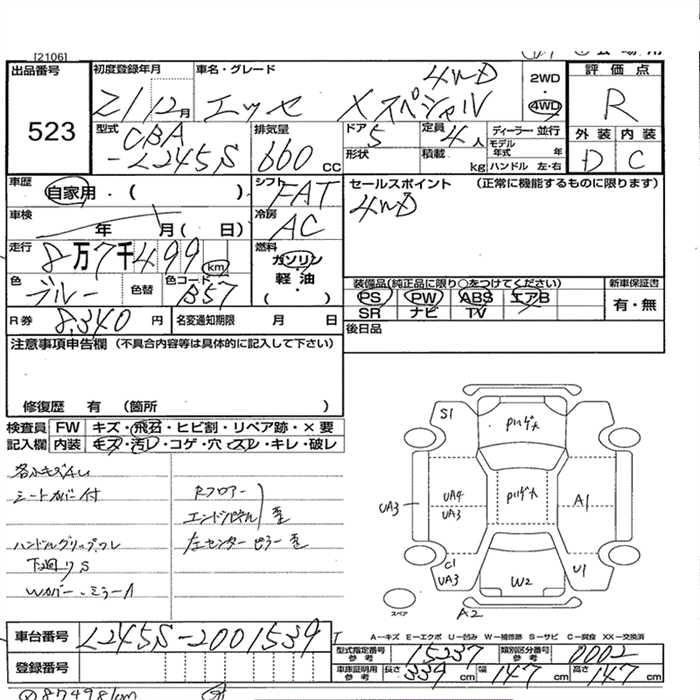 [2106]
出品番号
523
初度登録年月
21 12月
車名・グレード
エッセ Xスペシャル 4WD
2WD
・
4WD
評価点
R
型式
CBA
-L245S
排気量
660 CC
ドア
5
定員
4人
形状
積載
kg
ディーラー・並行
モデル
年式 年
ハンドル 左・右
外装 内装
D C
車歴
自家用・( )
シフト
FAT
セールスポイント (正常に機能するものに限ります)
4WD
車検
年 月( 日)
冷房
AC
走行
8万7千499 km
燃料
ガソリン
・
軽・油
( )
色
ブルー
色替
色コード
B57
装備品(純正品に限り○をつけてください)
PS PW ABS エアB
SR ナビ TV
新車保証書
有・無
R券 8,340 円
名変通知期限 月 日
後日品
注意事項申告欄 (不具合内容等は具体的に記入して下さい)
修復歴 有 (箇所 )
検査員
記入欄
FW キズ・飛石・ヒビ割・リペア跡・×要
内装 キズ・汚レ・コゲ・穴・スレ・キレ・破レ
各小キズ凹
シートカバー付
Rフロアー
エンドパネル
歪
ハンドルグリップスレ
左センターピラー歪
下廻りS
Wカバー・ミラーA
S1
UA3
UA4
UA3
A1
C1
UA3
U1
W2
A2
スペア
車台番号 L245S-2001539
登録番号
A-キズ E-エクボ U-凹み W-補修跡 S-サビ C-腐食 XX-交換済
型式指定番号
参考
15237
類別区分番号
参考
0002
車庫証明用
参考
長さ 339 cm
幅 147 cm
高さ 147 cm
87498km